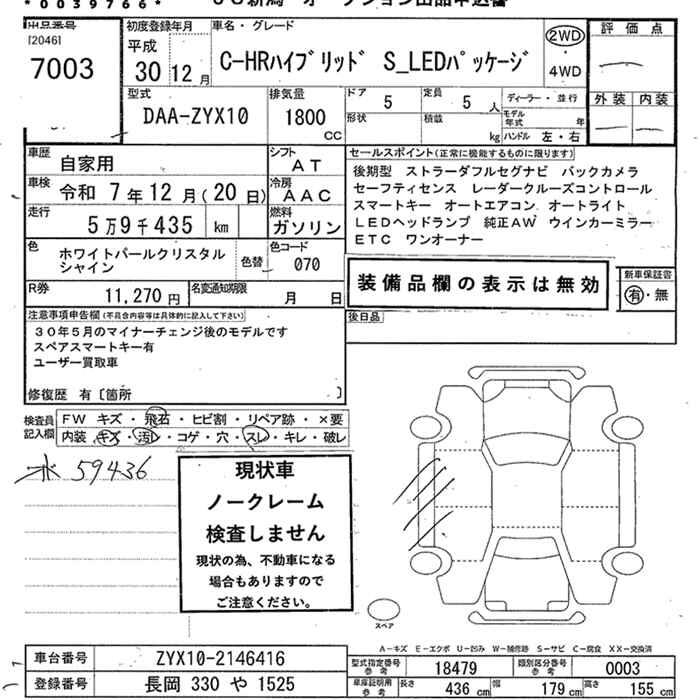 *0039766*
出品番号
[2046]
7003
初度登録年月
平成
30年12月
車名・グレード
C-HRハイブリッド S_LEDパッケージ
2WD
・
4WD
評価点
外装 内装
型式
DAA-ZYX10
排気量
1800
CC
ドア 5
定員 5人
形状
積載 kg
ディーラー・並行
モデル年式 年
ハンドル 左・右
車歴 自家用
シフト AT
車検 令和 7年12月(20日)
冷房 AAC
走行 5万9千435 km
燃料 ガソリン
色 ホワイトパールクリスタルシャイン
色替
色コード 070
R券 11,270円
名変通知期限 月 日
セールスポイント(正常に機能するものに限ります)
後期型 ストラーダフルセグナビ バックカメラ
セーフティセンス レーダークルーズコントロール
スマートキー オートエアコン オートライト
LEDヘッドランプ 純正AW ウインカーミラー
ETC ワンオーナー
装備品欄の表示は無効
新車保証書
有・無
後日品
注意事項申告欄(不具合内容等は具体的に記入して下さい)
30年5月のマイナーチェンジ後のモデルです
スペアスマートキー有
ユーザー買取車
修復歴 有〔箇所 〕
検査員記入欄
FW キズ・飛石・ヒビ割・リペア跡・×要
内装・キズ・汚レ・コゲ・穴・スレ・キレ・破レ
59436
現状車
ノークレーム
検査しません
現状の為、不動車になる
場合もありますので
ご注意ください。
スペア
A-キズ E-エクボ U-凹み W-補修跡 S-サビ C-腐食 XX-交換済
車台番号 ZYX10-2146416
登録番号 長岡 330 や 1525
型式指定番号 参考 18479
類別区分番号 参考 0003
車庫証明用 参考 長さ 436 cm 幅 179 cm 高さ 155 cm